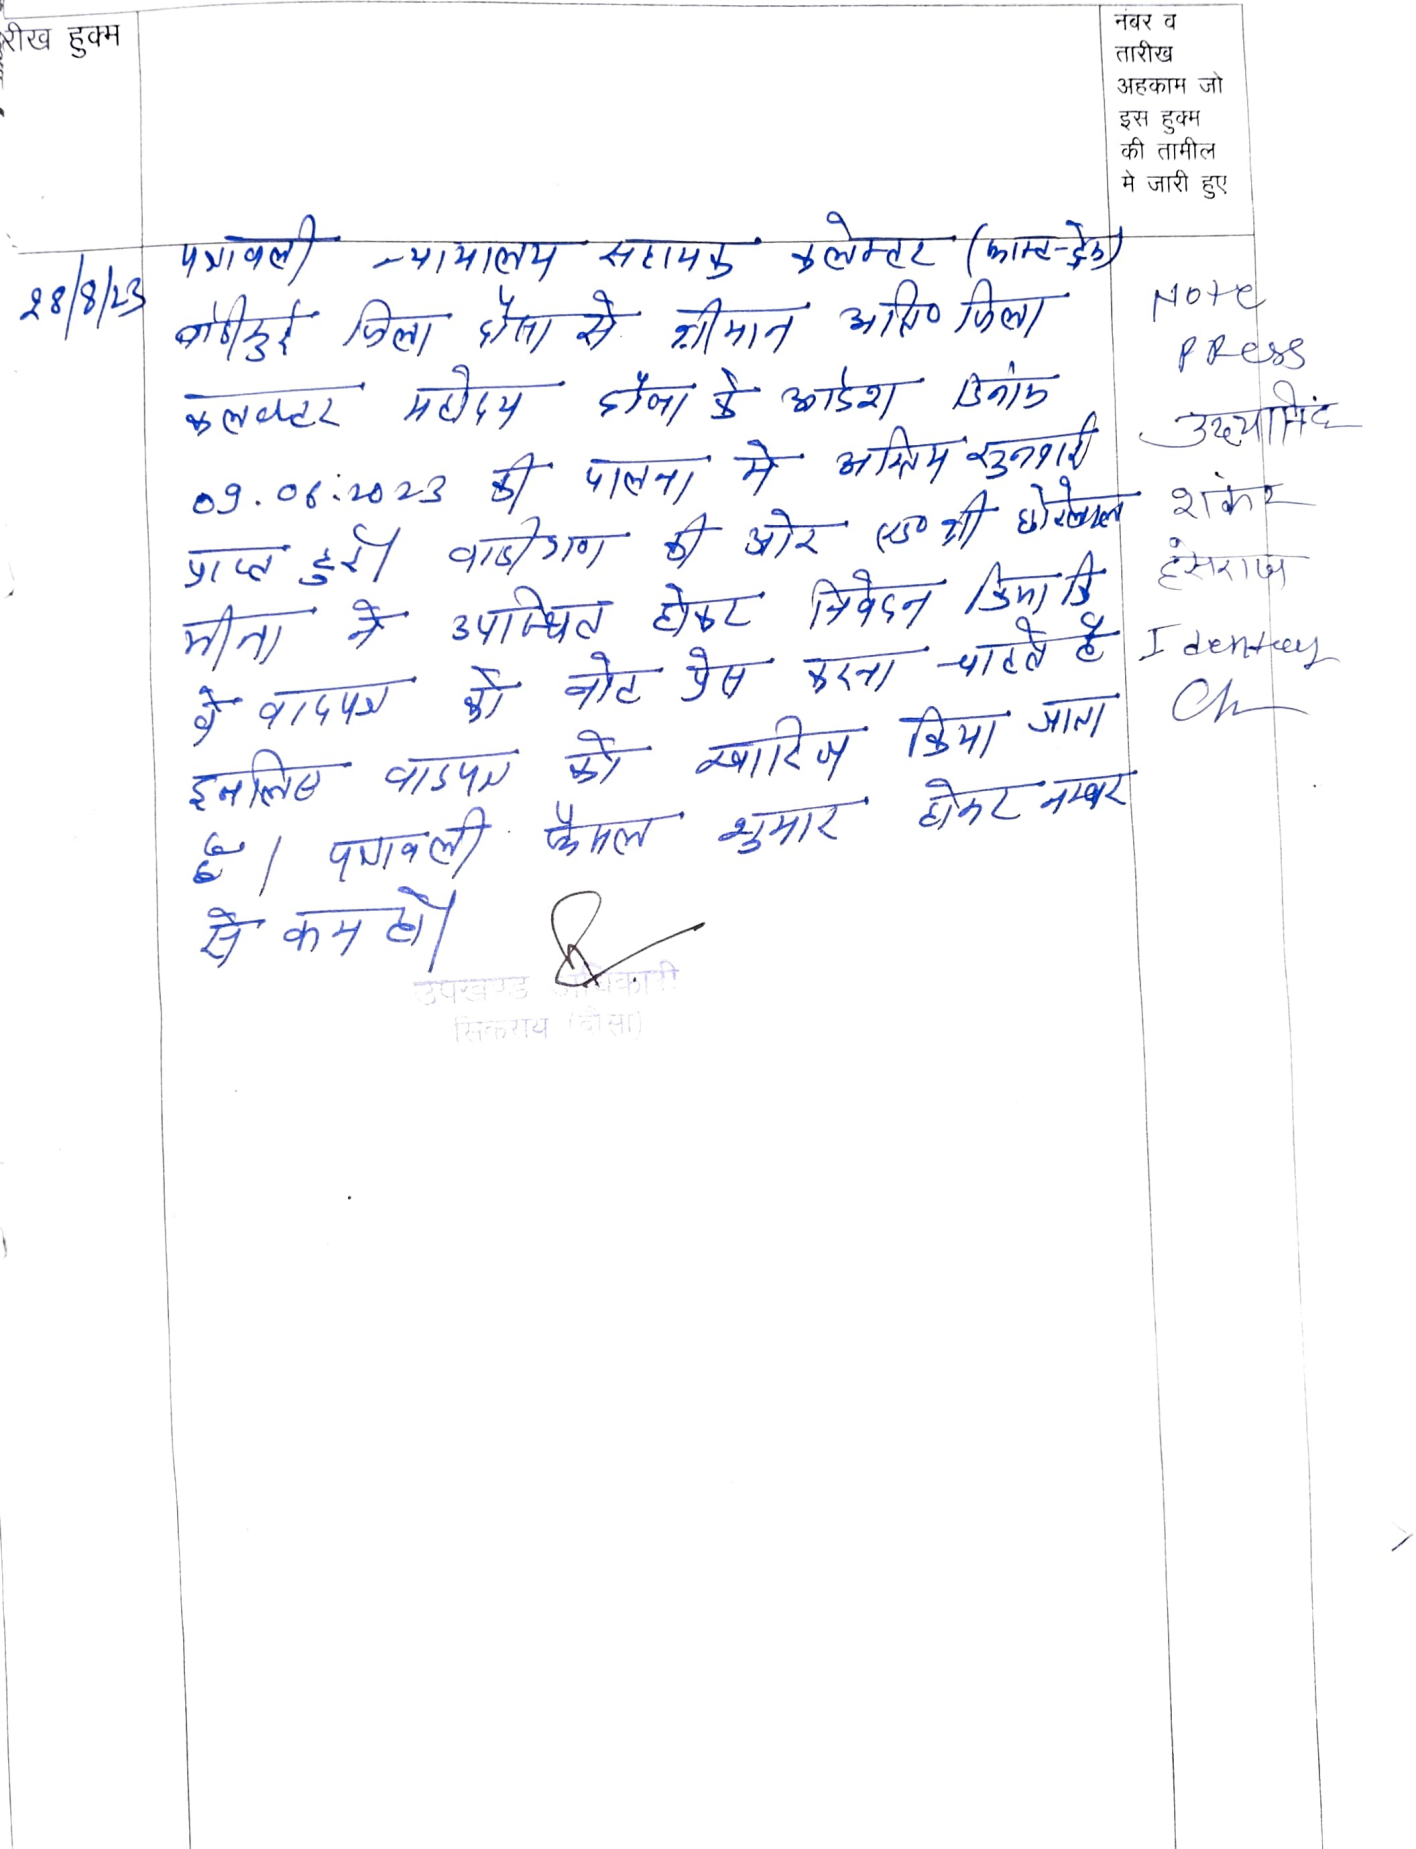 रीख हुक्म
नंबर व
तारीख
अहकाम जो
इस हुक्म
की तामील
मे जारी हुए
28/8/23
पत्रावली न्यायालय सहायक कलेक्टर (फास्ट-ट्रेक)
बांदीकुई जिला दौसा से श्रीमान अति० जिला
कलक्टर महोदय दौसा के आदेश दिनांक
09.06.2023 की पालना मे अन्तिम सुनवाई
प्राप्त हुई। वादीगण की ओर एड० श्री छोटेलाल
मीना ने उपस्थित होकर निवेदन किया कि
वे वादपत्र को नोट प्रेस करना चाहते है
इसलिए वादपत्र को खारिज किया जाता
है। पत्रावली फैसल शुमार होकर नम्बर
से कम हो।
उपखण्ड अधिकारी
सिकराय (दौसा)
Note
PRess
उदयसिंह
शंकर
हंसराज